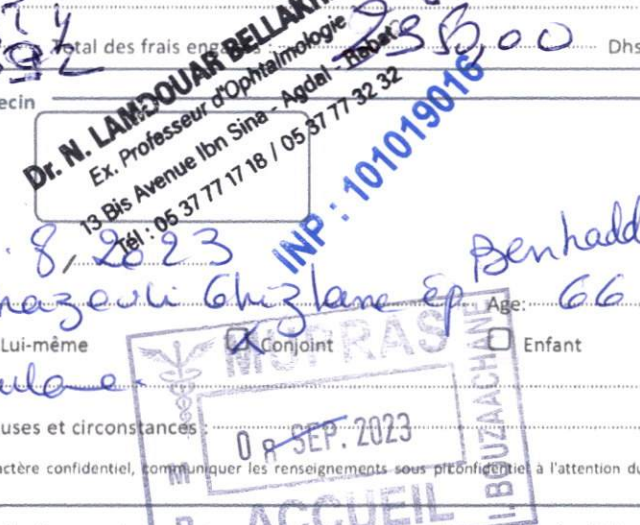 Total des frais engagés : 2350,00 Dhs
ecin
Dr. N. LAMDOUAR BELLAKH
Ex. Professeur d'Ophtalmologie
13 Bis Avenue Ibn Sina - Agdal - Rabat
Tél : 05 37 77 17 18 / 05 37 77 32 32
INP : 101019016
8, 2023
Benhadd
Ghizlane ép Age: 66
Lui-même Conjoint Enfant
MUPRAS
uses et circonstances :
08 SEP. 2023
actère confidentiel, communiquer les renseignements sous pli confidentiel à l'attention du
ACCUEIL
I.BOUZAACHANE